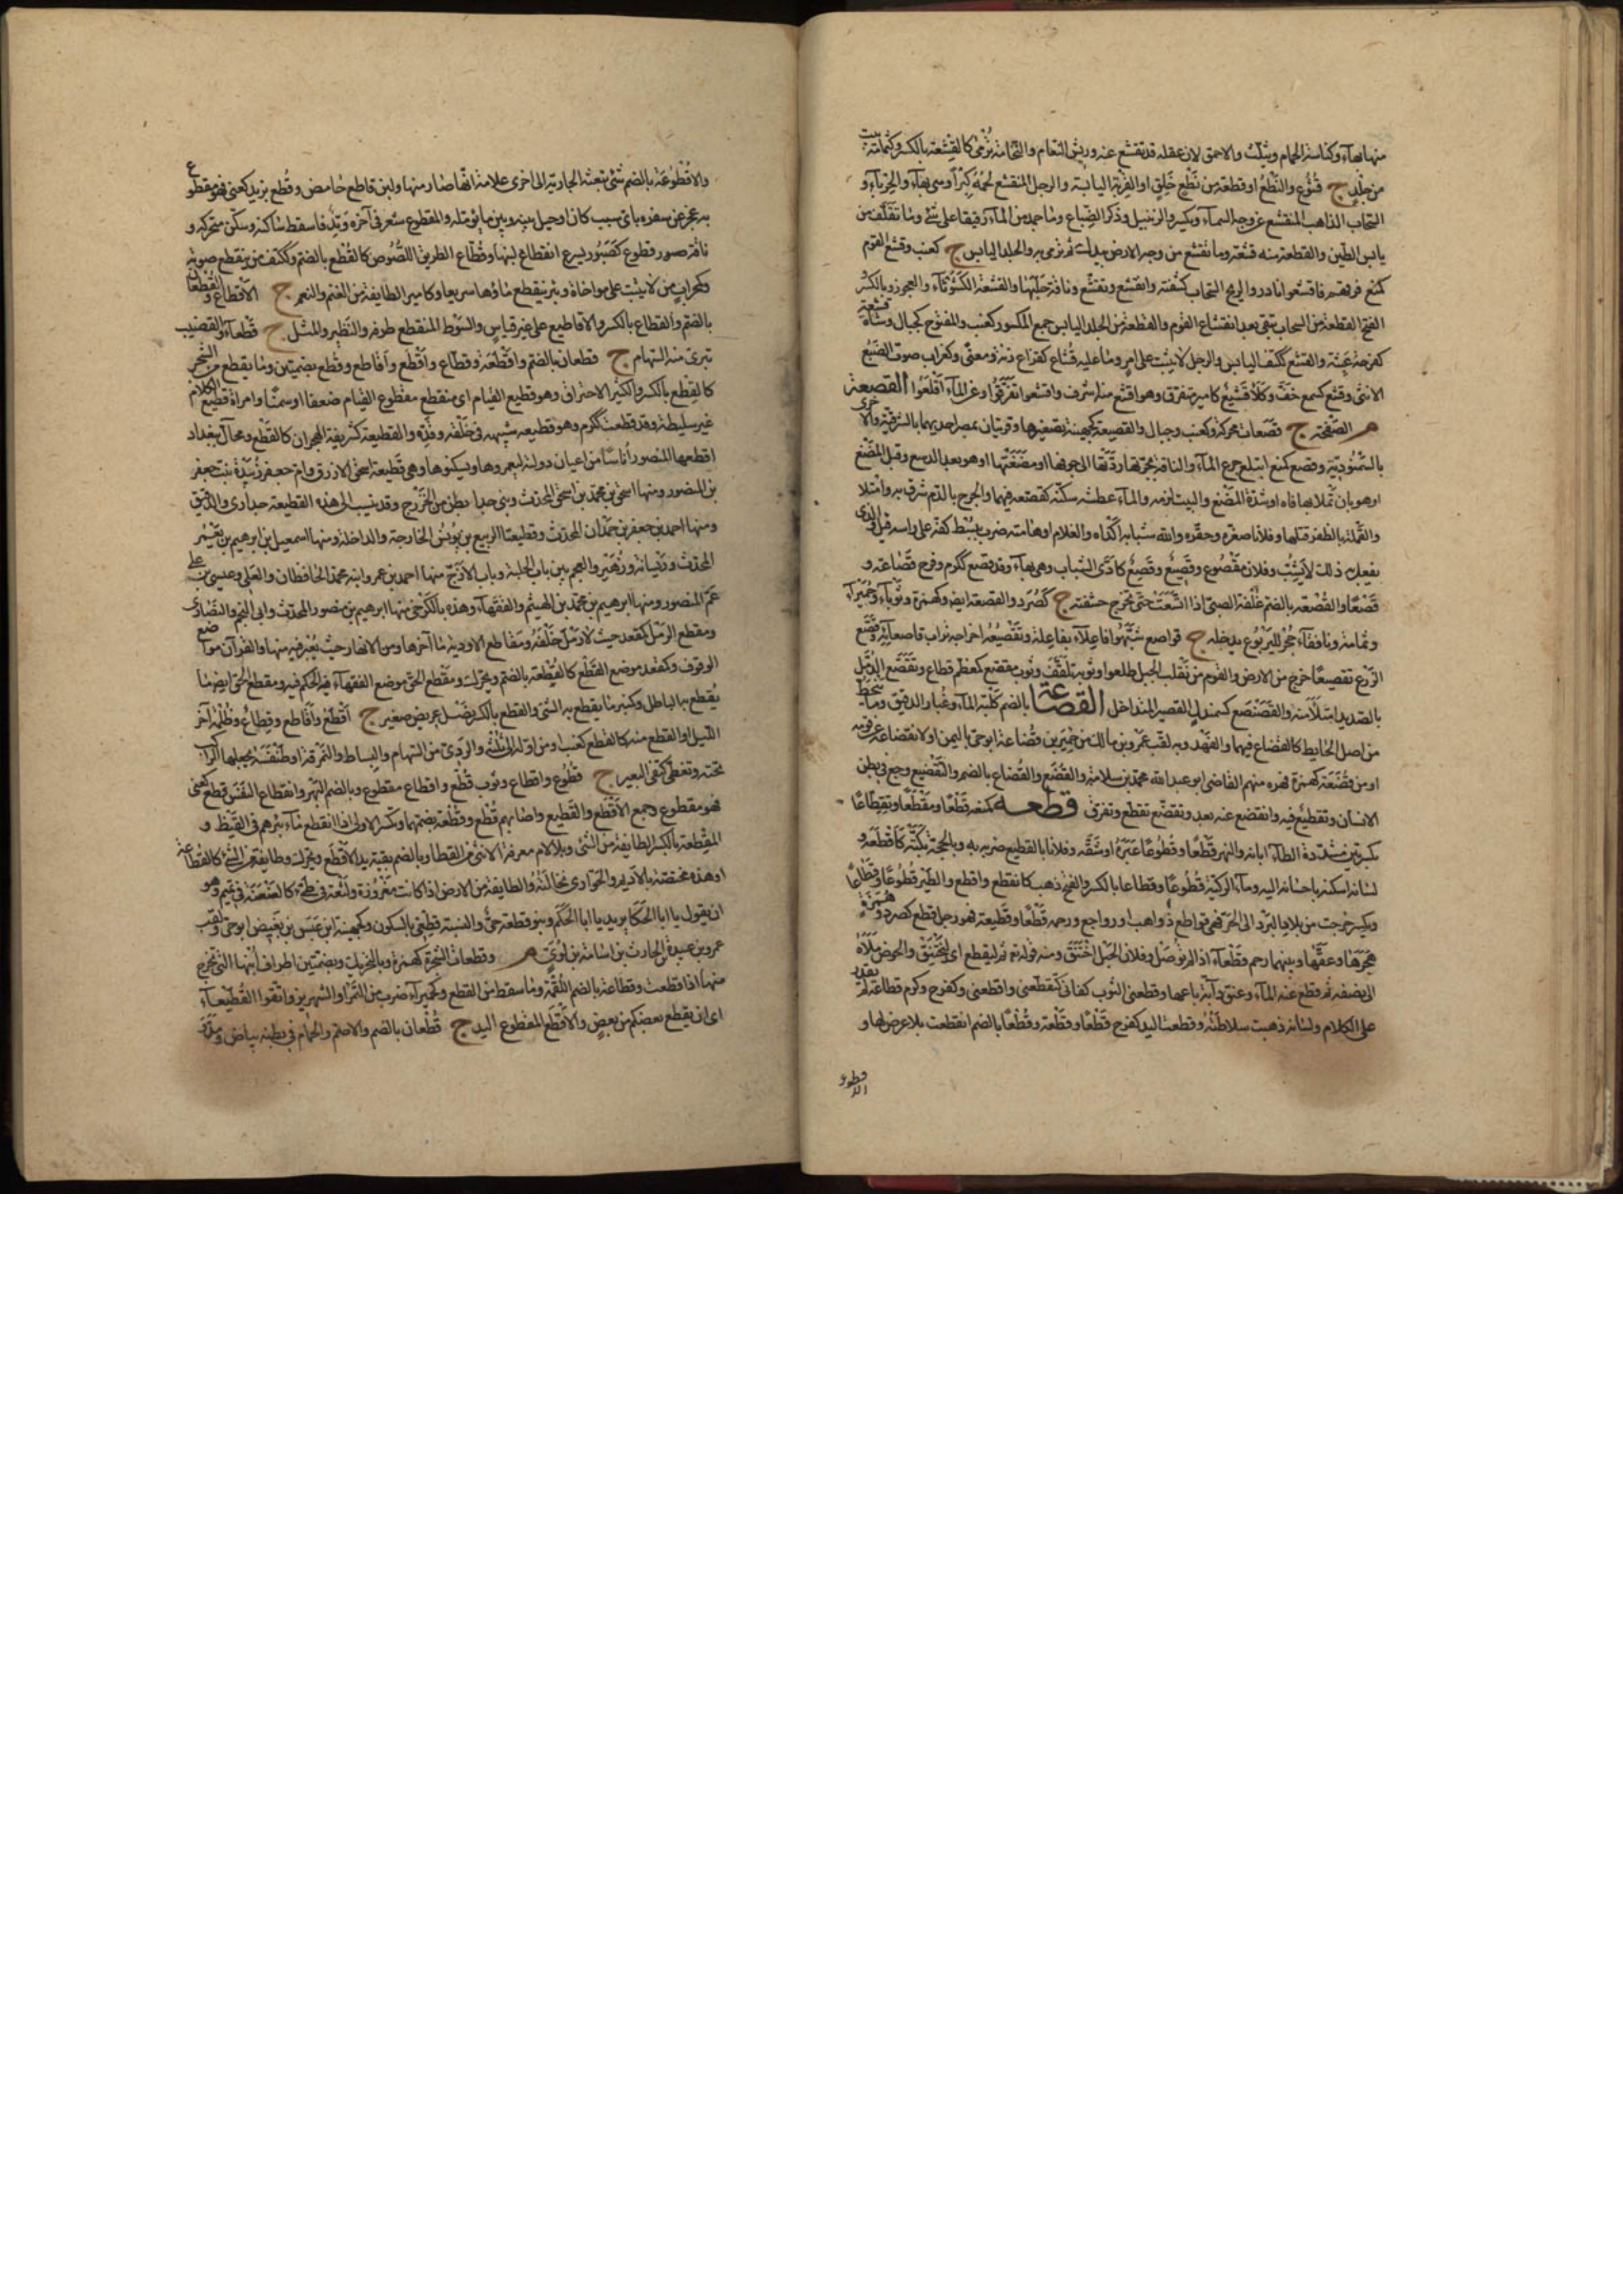 منها بهاء وكناسة الحمام ويثلث والاحمق لان عقله قد تقشع عنه وريش النعام والنخامة ترمى كالقشعة بالكسر وكثمامة بيت
من جلد ج قشوع والنطع او قطعة من نطع خلق او القربة اليابسة والرجل المنقشع لحمه كبرا وهي بهاء والحرباء و
السحاب الذاهب المنقشع عن وجه السماء ويكسر والزنبيل وذكر الضباع وما جمد من الماء رقيقا على شئ وما تقلف من
يابس الطين والقطعة منه قشعة وما تقشع من وجه الارض بيدك ثم ترمى به والجلد اليابس ج كعنب وقشع القوم
كمنع فرقهم فاقشعوا نادر والريح السحاب كشفته وانقشع وتقشع وناقة
الفتح القطعة من السحاب تبقى بعد انقشاع الغيم والقطعة من الجلد اليابس جمع المكسور كعنب والمفتوح كجبال وشاة قشعة
كفرحة غثة والقشع ككتف اليابس والرجل لا يثبت على امر وما عليه قشاع كقزاع زنة ومعنى وكغراب صوت الضبع
الانثى وقشع كسمع خف وكلأ قشيع كامير متفرق وهو اقشع منه اشرف واقشعوا تفرقوا او عن الماء اقلعوا القصعة
م الصحفة ج قصعات محركة وكعنب وجبال والقصيعة كجهينة تصغيرها وقريتان بمصر احديهما بالشرقية والاخرى
بالسمنودية وقصع كمنع ابتلع جرع الماء والناقة بجرتها ردتها الى جوفها او مضغتها او هو بعد الدسع وقبل المضغ
او هو بان تملأ بها فاه او شدة المضغ والبيت لزمه والماء عطشه سكنه كقصعه فيهما والجرح بالدم شرق به وامتلا
والقملة بالظفر قتلها وفلانا صغره وحقره والله شبابه اكداه والغلام او هامته ضرب ببسط كفه على راسه قيل والذى
يفعل ذلك لا يشب وفلان مقصوع وقصيع وقصع كادى الشباب وهي بهاء وقد قصع ككرم وفرح قصاعة و
قصعا والقصعة بالضم غلفة الصبى اذا اتسعت حتى تخرج حشفته ج كصرد والقصعة ايضا وكهمزة وثوباء وحميراء
وثمامة ونافقاء جحر لليربوع يدخله ج قواصع شبهوا فاعلاء بفاعلة وتقصيعه اخراجه تراب قاصعائه وقصع
الزرع تقصيعا خرج من الارض والقوم من نقب الجبل طلعوا وثوبه تلفف وثوب مقصع كمعظم قطاع وتقصع الدمل
بالصديد امتلأ منه والقصنصع كسمندل القصير المتداخل القضاعة بالضم كلبة الماء وغبار الدقيق وما تحط
من اصل الحايط كالقضاع فيهما والفهد وبه لقب عمرو بن مالك من حمير بن قضاعة ابو حى باليمن او لانقضاعه عن قومه
او من قضعه كمنعه قهره منهم القاضى ابو عبد الله محمد بن سلامة والقضع والقضاع بالضم والتقضيع وجع في بطن
الانسان وتقطيع فيه وانقضع عنه بعد وتقضع تقطع وتفرق قطعه كمنعه قطعا ومقطعا وتقطاعا
بكسرتين مشددة الطاء ابانه والنهر قطعا وقطوعا عبره او شقه وفلانا بالقطيع ضربه به وبالحجة بكته كاقطعه و
لسانه اسكته باحسانه اليه وماء الركية قطوعا وقطاعا بالكسر والفتح ذهب كانقطع واقطع والطير قطوعا وقطاعا
ويكسر خرجت من بلاد البرد الى الحر فهي قواطع ذواهب او رواجع ورحمه قطعا وقطيعة فهو رجل قطع كصرد وهمزة
هجرها وعقها وبينهما رحم قطعاء اذا لم توصل وفلان الحبل اختنق ومنه قوله تع ثم ليقطع اى ليختنق والحوض ملأه
الى نصفه ثم قطع عنه الماء وعنق دابته باعها وقطعنى الثوب كفانى كقطعنى واقطعنى وكفرح وكرم قطاعة لم يقدر
على الكلام ولسانه ذهبت سلاطته وقطعت اليد كفرح قطعا وقطعة وقطعا بالضم انقطعت بلا عرض لها و
والاقطوعة بالضم شئ تبعثه الجارية الى اخرى علامة انها صارمتها ولبن قاطع حامض وقطع بزيد كعنى فهو مقطوع
به عجز عن سفره باى سبب كان او حيل بينه وبين ما يؤمله والمقطوع شعر في آخره وتد فاسقط ساكنه وسكن متحركه و
ناقة قطوع كصبور يسرع انقطاع لبنها وقطاع الطريق اللصوص كالقطع بالضم وككتف من ينقطع صوته
وكمحراب من لا يثبت على مواخاة وبئر ينقطع ماؤها سريعا وكامير الطايفة من الغنم والنعم ج الاقطاع والقطعان
بالضم والقطاع بالكسر والاقاطيع على غير قياس والسوط المنقطع طرفه والنظير والمثل ج قطعاء والقضيب
تبرى منه السهام ج قطعان بالضم واقطعة وقطاع واقطع واقاطع وقطع بضمتين وما يقطع من الشجر
كالقطع بالكسر والكثير الاحتراق وهو قطيع القيام اى منقطع مقطوع القيام ضعفا او سمنا وامراة قطيع الكلام
غير سليطة وقد قطعت ككرم وهو قطيعه شبيهه في خلقه وقده والقطيعة كشريفة الهجران كالقطع ومحال ببغداد
اقطعها المنصور اناسا من اعيان دولته ليعمروها ويسكنوها وهي قطيعة اسحق الازرق وام جعفر زبيدة بنت جعفر
بن المنصور ومنها اسحق بن محمد بن اسحق المحدث وبنى جدار بطن من الخزرج وقد ينسب الى هذه القطيعة جدارى والدقيق
ومنها احمد بن جعفر بن حمدان المحدث وقطيعتا الربيع بن يونس الخارجة والداخلة ومنها اسمعيل بن ابرهيم بن يعمر
المحدث وريسانة وزهير والعجم بين باب الحلبة وباب الازج منها احمد بن عمر وابنه محمد الحافظان والعكى وعيسى بن على
عم المنصور ومنها ابرهيم بن محمد بن الهيثم والفقهاء وهذه بالكرخ منها ابرهيم بن منصور المحدث وابى النجم والنصارى
ومقطع الرمل كمقعد حيث لا رمل خلفه ومقاطع الاودية مآخرها ومن الانهار حيث يعبر فيه منها والقرآن مواضع
الوقوف وكمقعد موضع القطع كالقطعة بالضم ويحرك ومقطع الحق موضع التقاء الحكم فيه ومقطع الحق ايضا ما
يقطع به الباطل وكمنبر ما يقطع به الشئ والقطع بالكسر نصل عريض صغير ج اقطع واقاطع وقطاع وظلمة آخر
الليل او القطعة منه كالقطع كعنب او من اوله الى ثلثه والردئ من السهام والبساط والنمرقة او طنفسة يجعلها الراكب
تحته وتغطى كتفى البعير ج قطوع واقطاع وثوب قطع واقطاع مقطوع وبالضم البهر وانقطاع النفس قطع كعنى
فهو مقطوع وجمع الاقطع والقطيع واصابهم قطع وقطعة بضمهما وتكسر الاولى اذا انقطع ماء بئرهم في القيظ و
القطعة بالكسر الطايفة من الشئ وبلا لام معرفة الانثى من القطا وبالضم بقية يد الاقطع ويحرك وطايفة من الشئ كالقطاعة
او هذه مختصة بالاديم والحوارى نخالته والطايفة من الارض اذا كانت مفروزة ولثغة في طئ كالعنعنة في تميم وهو
ان يقول يا ابا الحكا يريد يا ابا الحكم وبنو قطعة حى والنسبة قطعى بالسكون وكجهينة ابن عبس بن بغيض ابو حى ولقب
عمرو بن عبيدة بن الحارث بن اسامة بن لؤى م وقطعات الشجر كهمزة وبالتحريك وبضمتين اطراف ابنها التى تخرج
منها اذا قطعت وقطاعة بالضم اللقمة وما سقط من القطع وكحميراء ضرب من التمر او الشهريز واتقوا القطيعاء
اى ان يقطع بعضكم من بعض والاقطع المقطوع اليد ج قطعان بالضم والاصم والحمام في بطنه بياض
قطوع